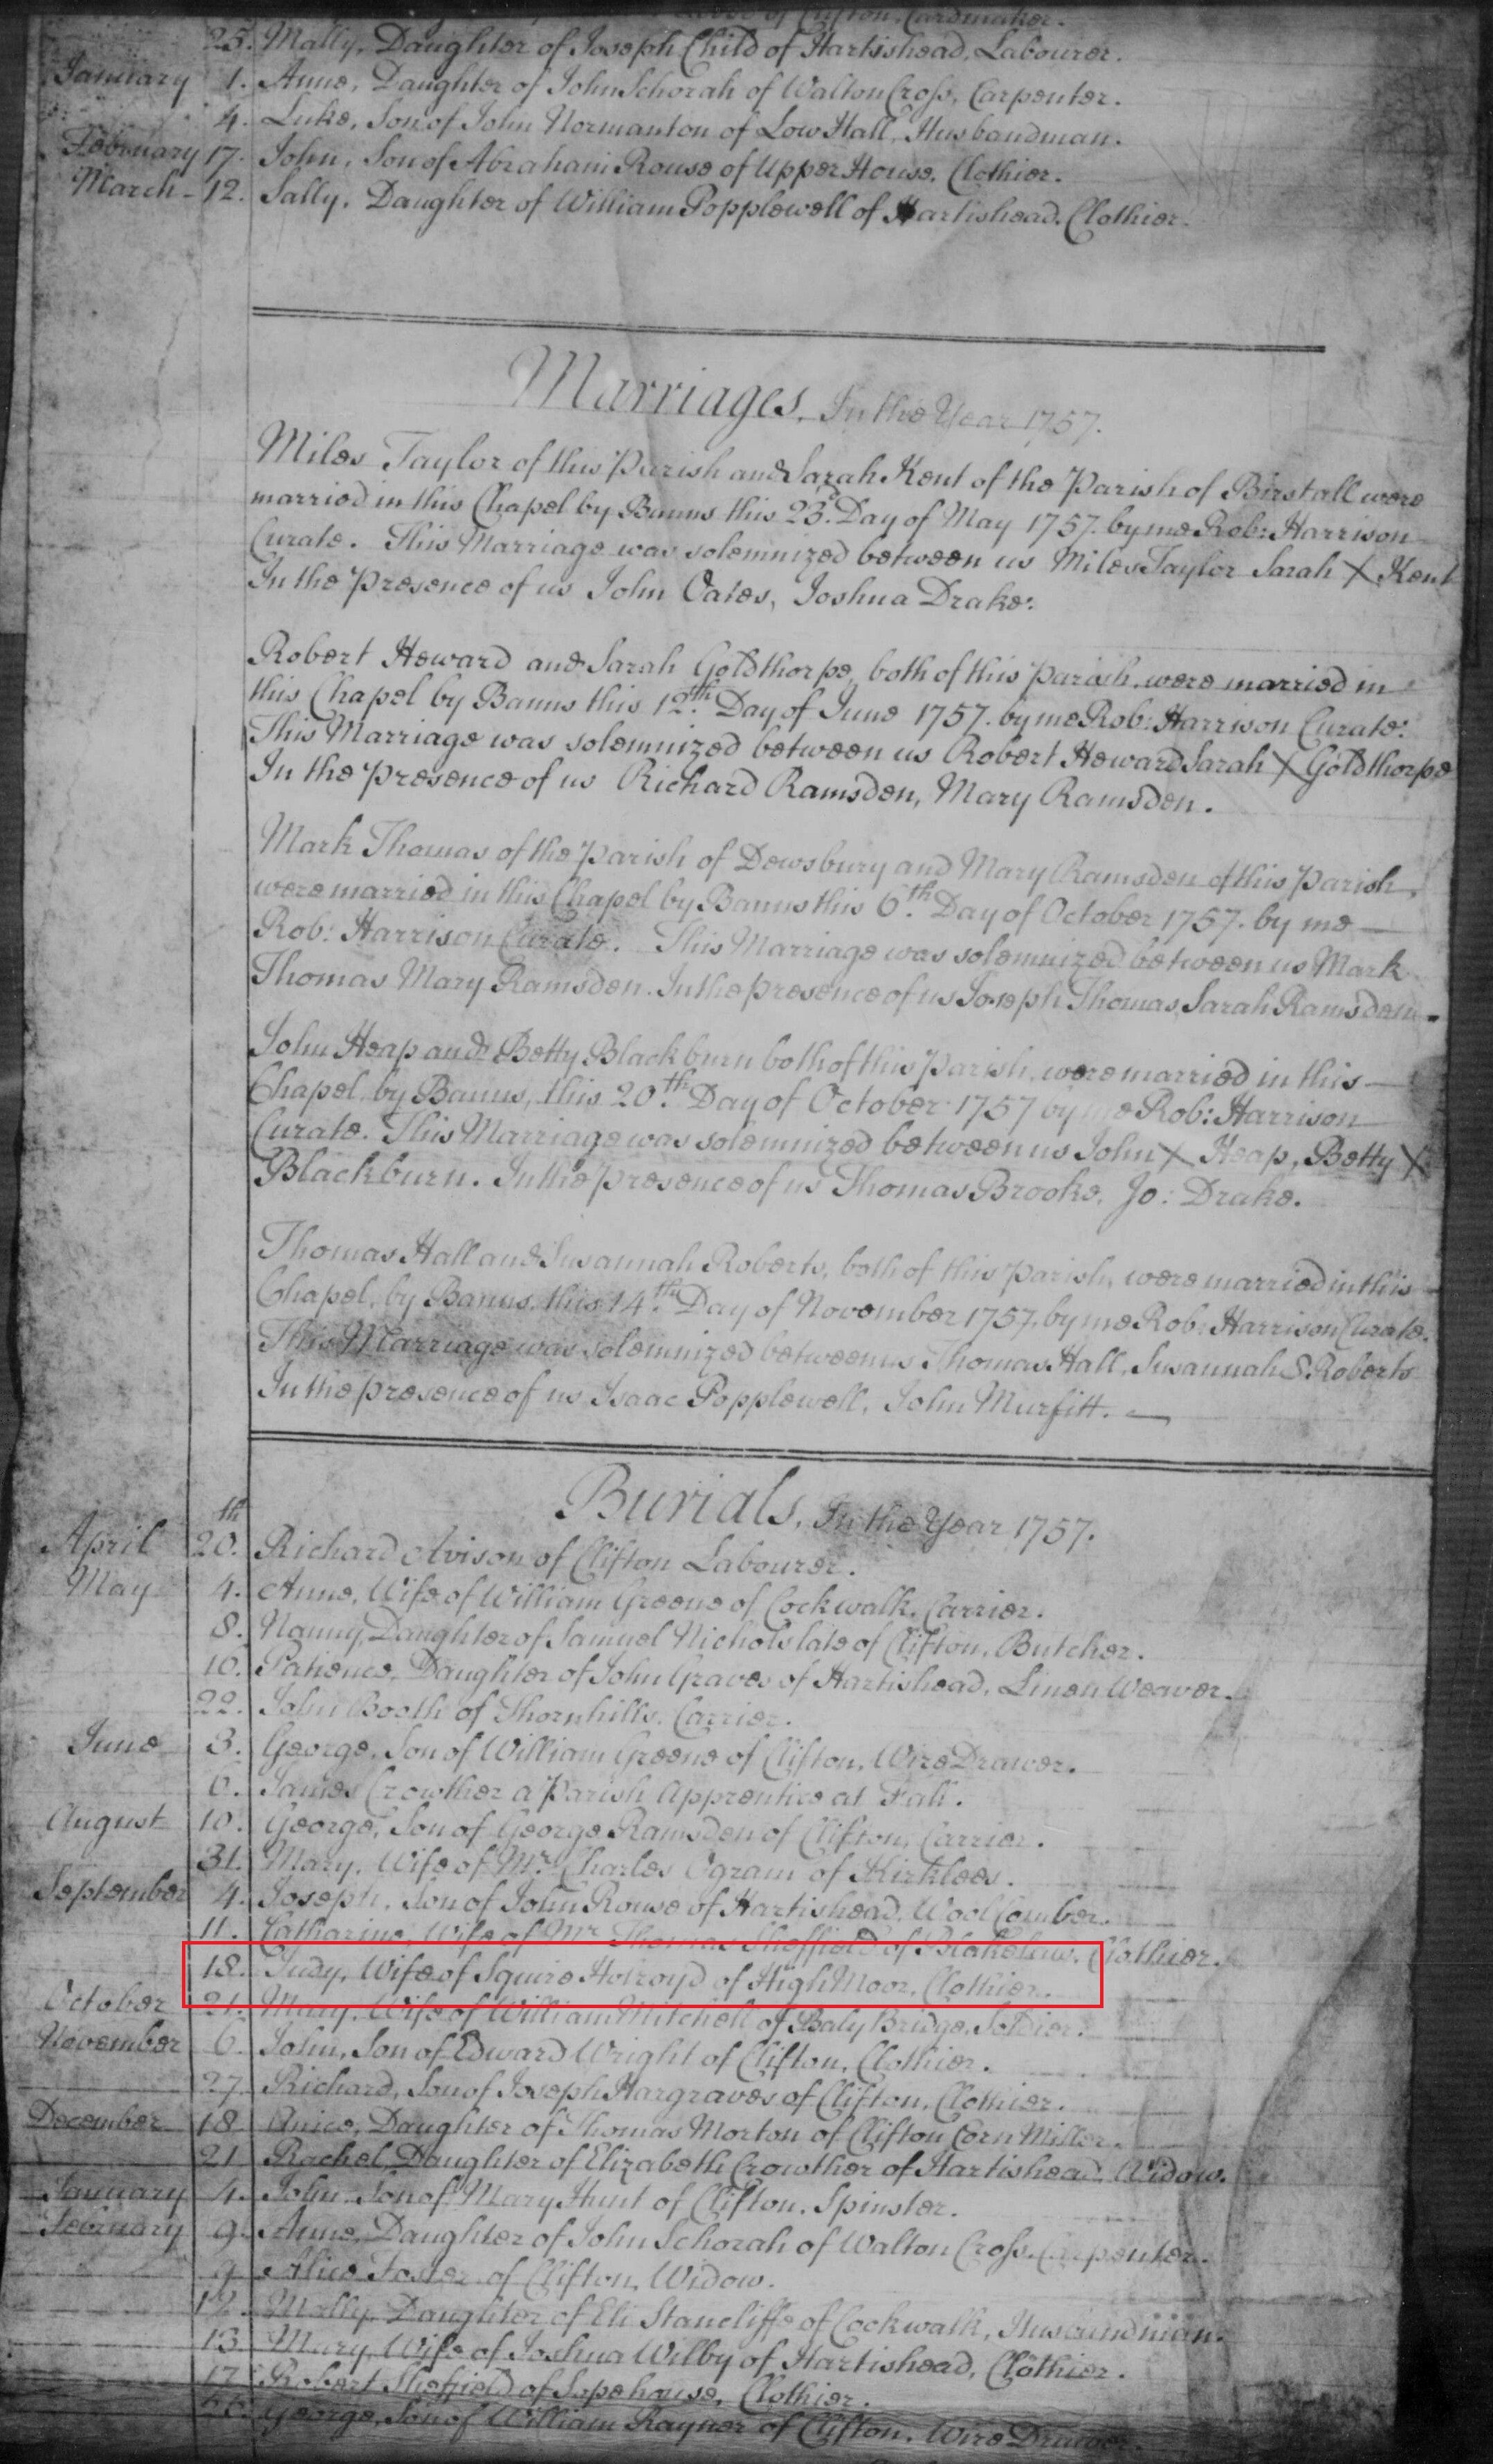 of Clifton, Cardmaker.
25. Mally, Daughter of Joseph Child of Hartishead, Labourer.
January 1. Anne, Daughter of John Schorah of Walton Cross, Carpenter.
4. Luke, Son of John Normanton of Low Hall, Husbandman.
February 17. John, Son of Abraham Rouse of Upper House, Clothier.
March - 12. Sally, Daughter of William Popplewell of Hartishead, Clothier.
Marriages, In the Year 1757.
Miles Taylor of this Parish and Sarah Kent of the Parish of Birstall were
married in this Chapel by Banns this 23.d Day of May 1757. by me Rob: Harrison
Curate. This Marriage was solemnized between us Miles Taylor Sarah X Kent
In the Presence of us John Oates, Joshua Drake.
Robert Heward and Sarah Goldthorpe, both of this Parish, were married in
this Chapel by Banns this 12.th Day of June 1757. by me Rob: Harrison Curate:
This Marriage was solemnized between us Robert Heward Sarah X Goldthorpe
In the Presence of us Richard Ramsden, Mary Ramsden.
Mark Thomas of the Parish of Dewsbury and Mary Ramsden of this Parish,
were married in this Chapel by Banns this 6.th Day of October 1757. by me
Rob: Harrison Curate. This Marriage was solemnized between us Mark
Thomas Mary Ramsden. In the presence of us Joseph Thomas, Sarah Ramsden.
John Heap and Betty Blackburn both of this Parish, were married in this
Chapel, by Banns, this 20.th Day of October 1757 by me Rob: Harrison
Curate. This Marriage was solemnized between us John X Heap, Betty X
Blackburn. In the presence of us Thomas Brooke, Jo: Drake.
Thomas Hall and Susannah Roberts, both of this Parish, were married in this
Chapel, by Banns, this 14.th Day of November 1757. by me Rob: Harrison Curate.
This Marriage was solemnized between us Thomas Hall, Susannah S. Roberts
In the presence of us Isaac Popplewell, John Murfitt.
Burials, In the Year 1757.
April 20.th Richard Avison of Clifton Labourer.
May 4. Anne, Wife of William Greene of Cockwalk, Carrier.
8. Nanny, Daughter of Samuel Nichols late of Clifton, Butcher.
10. Patience, Daughter of John Graves of Hartishead, Linen Weaver.
22. John Booth of Thornhills, Carrier.
June 3. George, Son of William Greene of Clifton, Wire Drawer.
6. James Crowther a Parish Apprentice at
August 10. George, Son of George Ramsden of Clifton, Carrier.
31. Mary, Wife of Mr. Charles Ogram of Kirklees.
September 4. Joseph, Son of John Rouse of Hartishead, Wool Comber.
11. Catharine, Wife of Mr Thomas Sheffield of Blakelaw, Clothier.
18. Judy, Wife of Squire Holroyd of High Moor, Clothier.
October 21. Mary, Wife of William Mitchell of Baly Bridge, Soldier.
November 6. John, Son of Edward Wright of Clifton, Clothier.
27. Richard, Son of Joseph Hargraves of Clifton, Clothier.
December 18. Daughter of Thomas Morton of Clifton Corn Miller.
21 Rachel, Daughter of Elizabeth Crowther of Hartishead, Widow.
January 4. John, Son of Mary Hunt of Clifton, Spinster.
February 9. Anne, Daughter of John Schorah of Walton Cross, Carpenter.
9 Alice Foster of Clifton, Widow.
12. Molly, Daughter of Eli Stancliffe of Cockwalk, Husbandman.
13. Mary, Wife of Joshua Wilby of Hartishead, Clothier.
17 Robert Sheffield of Clothier.
26. George, Son of William Rayner of Clifton, Wire Drawer.